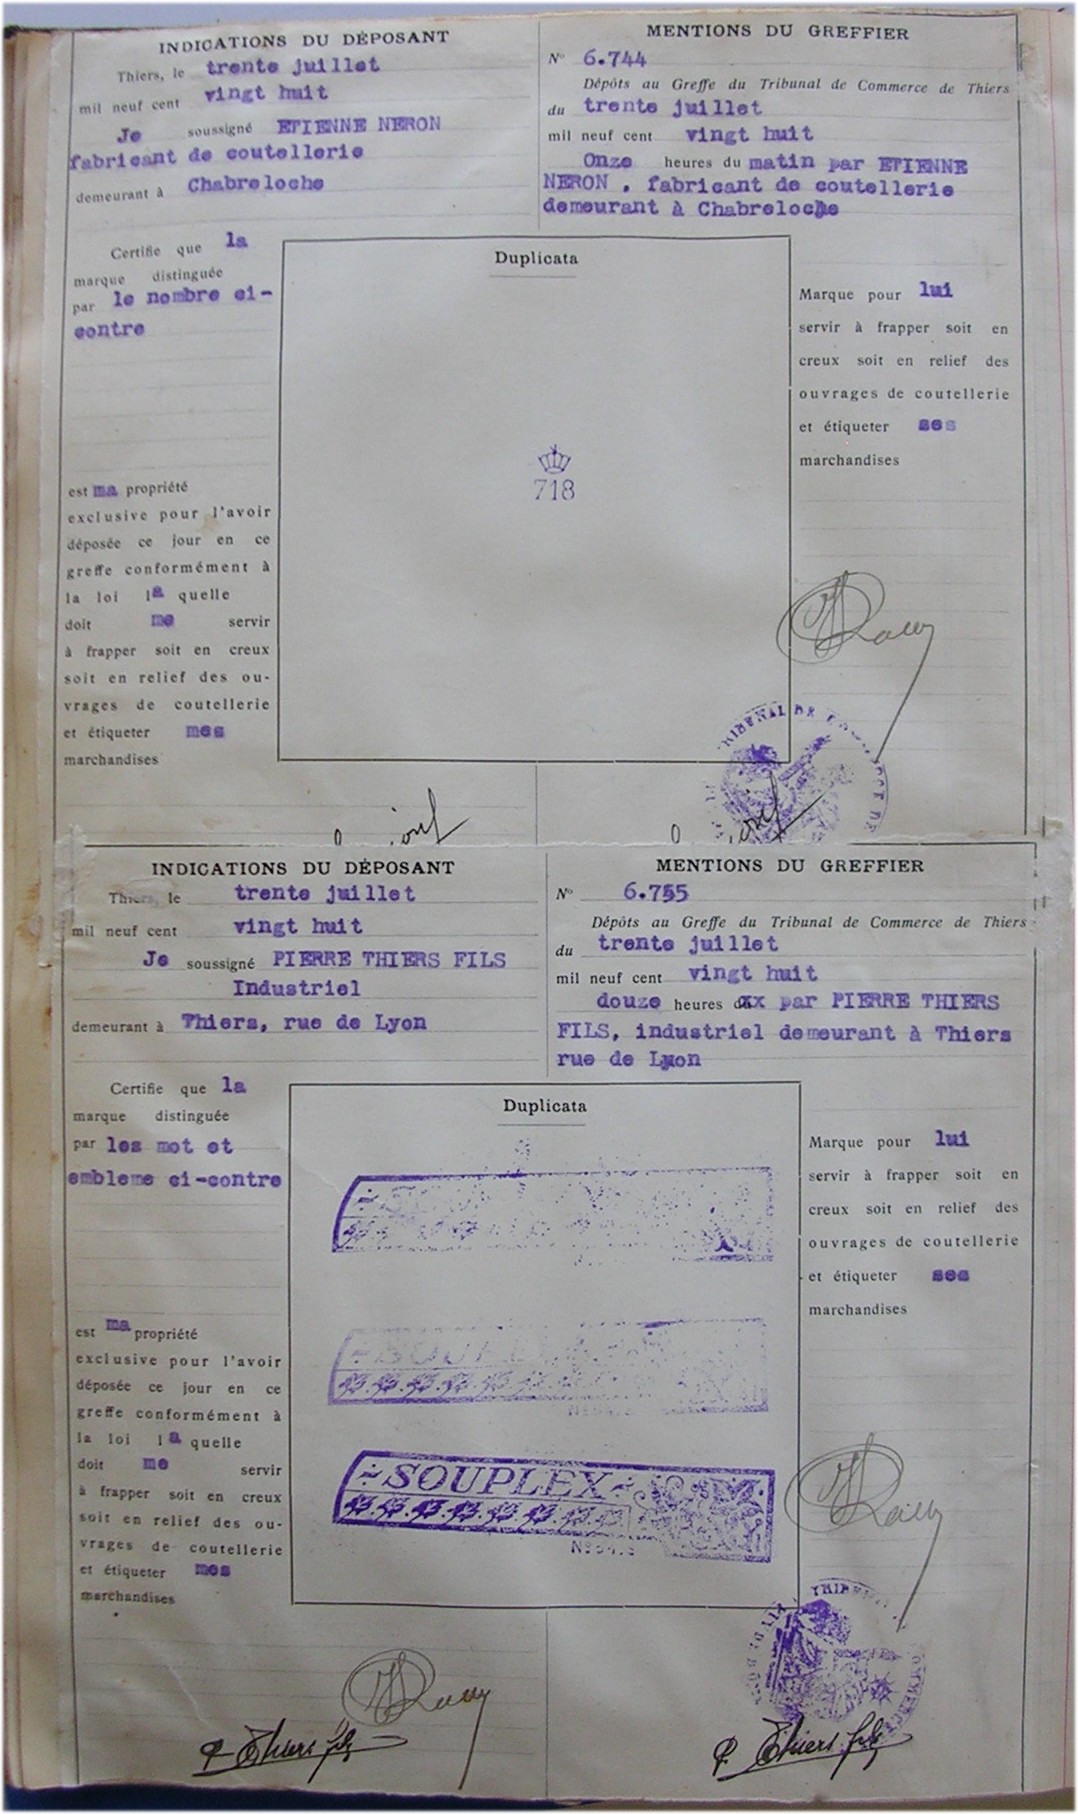 INDICATIONS DU DÉPOSANT
Thiers, le trente juillet
mil neuf cent vingt huit
Je soussigné ETIENNE NERON
fabricant de coutellerie
demeurant à Chabreloche
MENTIONS DU GREFFIER
N° 6.744
Dépôts au Greffe du Tribunal de Commerce de Thiers
du trente juillet
mil neuf cent vingt huit
Onze heures du matin par ETIENNE
NERON , fabricant de coutellerie
demeurant à Chabreloche
Certifie que la
marque distinguée
par le nombre ci-
contre
est ma propriété
exclusive pour l'avoir
déposée ce jour en ce
greffe conformément à
la loi la quelle
doit me servir
à frapper soit en creux
soit en relief des ou-
vrages de coutellerie
et étiqueter mes
marchandises
Duplicata
718
Marque pour lui
servir à frapper soit en
creux soit en relief des
ouvrages de coutellerie
et étiqueter ses
marchandises
TRIBUNAL DE
INDICATIONS DU DÉPOSANT
Thiers, le trente juillet
mil neuf cent vingt huit
Je soussigné PIERRE THIERS FILS
Industriel
demeurant à Thiers, rue de Lyon
MENTIONS DU GREFFIER
N° 6.755
Dépôts au Greffe du Tribunal de Commerce de Thiers
du trente juillet
mil neuf cent vingt huit
douze heures du xx par PIERRE THIERS
FILS, industriel demeurant à Thiers
rue de Lyon
Certifie que la
marque distinguée
par les mot et
embleme ci-contre
est ma propriété
exclusive pour l'avoir
déposée ce jour en ce
greffe conformément à
la loi la quelle
doit me servir
à frapper soit en creux
soit en relief des ou-
vrages de coutellerie
et étiqueter mes
marchandises
Duplicata
SOUPLEX
SOUPLEX
Marque pour lui
servir à frapper soit en
creux soit en relief des
ouvrages de coutellerie
et étiqueter ses
marchandises
P. Thiers fils
P. Thiers fils